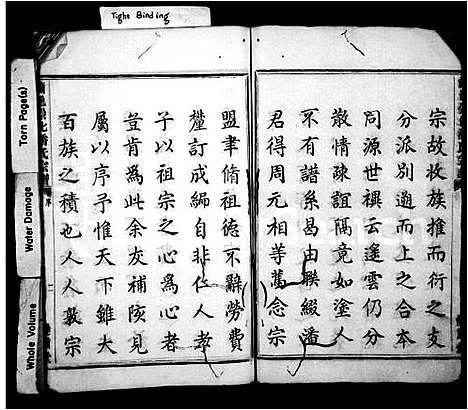 Tight Binding
Torn Page(s)
Water Damage
Whole Volume
宗故收族推而衍之支
分派別遡而上之合本
同源世禩云遙雲仍分
散情疎誼隔竟如塗人
不有譜系曷由聯綴潘
君得周元相等篤念宗
盟聿脩祖德不辭勞費
釐訂成編自非仁人孝
子以祖宗之心為心者
豈肯為此余友補陔見
屬以序予惟天下雖大
百族之積也人人敦宗